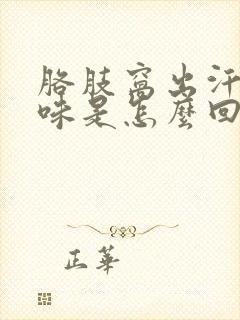 胳肢窝出汗
味是怎麼回
正華